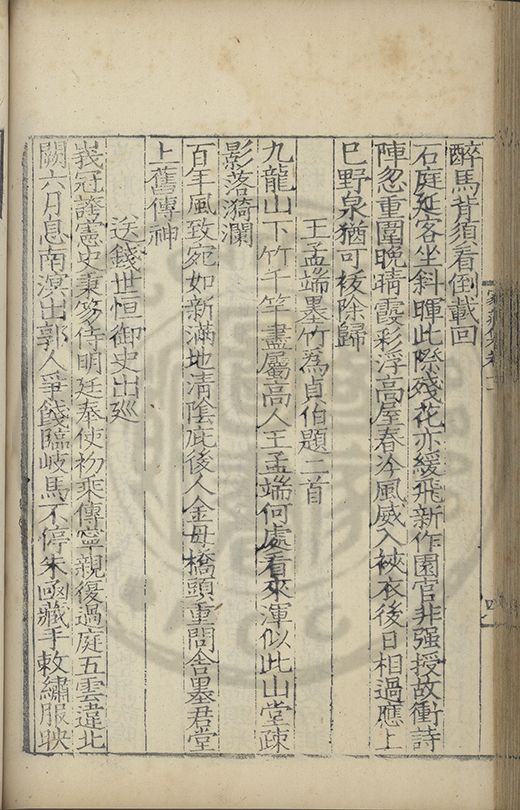 醉馬背須看倒載回
石庭延客坐斜暉此際殘花亦緩飛新作園官非强授故衝詩
陣忽重圍晚晴霞彩浮高屋春夕風威入裌衣後日相過應上
巳野泉猶可祓除歸
王孟端墨竹爲貞伯題二首
九龍山下竹千竿盡屬高人王孟端何處看來渾似此山堂疎
影落漪瀾
百年風致宛如新滿地清陰庇後人金母橋頭重問舍墨君堂
上舊傳神
送錢世恒御史出廵
峩冠謹憲史秉笏侍明廷奉使初乘傳寧親復過庭五雲違北
闕六月息南溟出郭人爭餞臨岐馬不停朱凾藏手敕繡服映